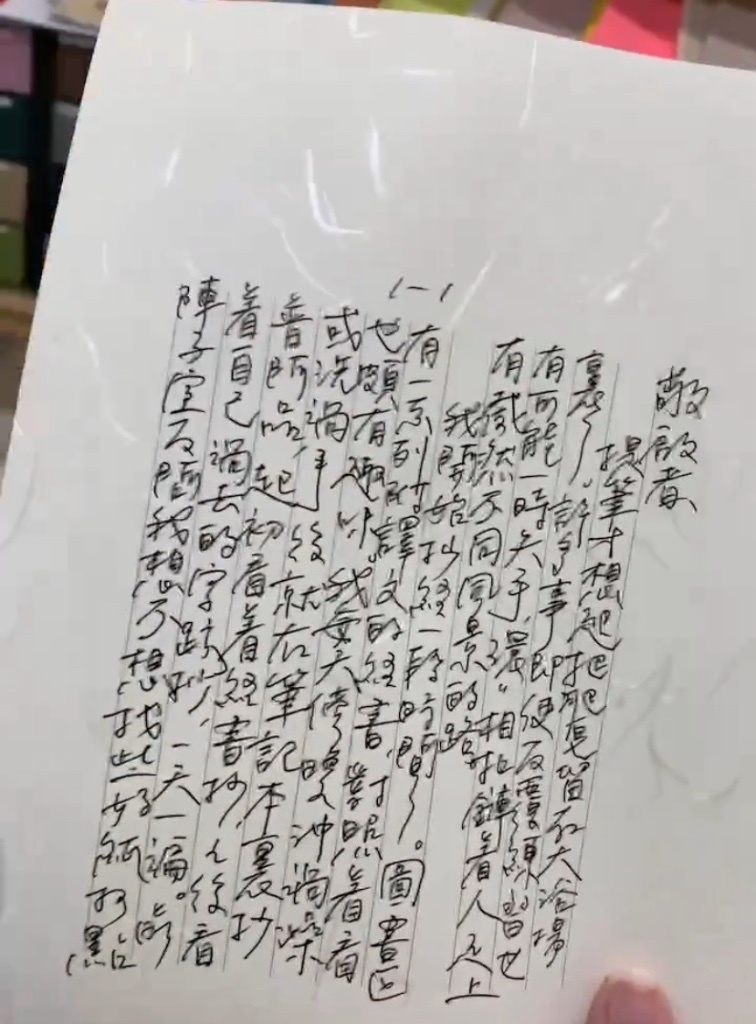 敬啟者、
提筆才想起把肥皂留在大浴場
裏了。許多事即使反覆練習也
有可能一時失手,還 相 鏈著人走上
有截然不同風景的路
我開始抄經一段時間了。圖書區
(一)
有一系列附譯文的經書,對照着看
也頗有趣味。我每天傍晚沖過澡
或洗過 後就在筆記本裏抄
普 品,起初看着經書抄,之後看
着自己過去的字跡抄,一天一遍。前
陣子室友問我想不想找些好紙抄 點